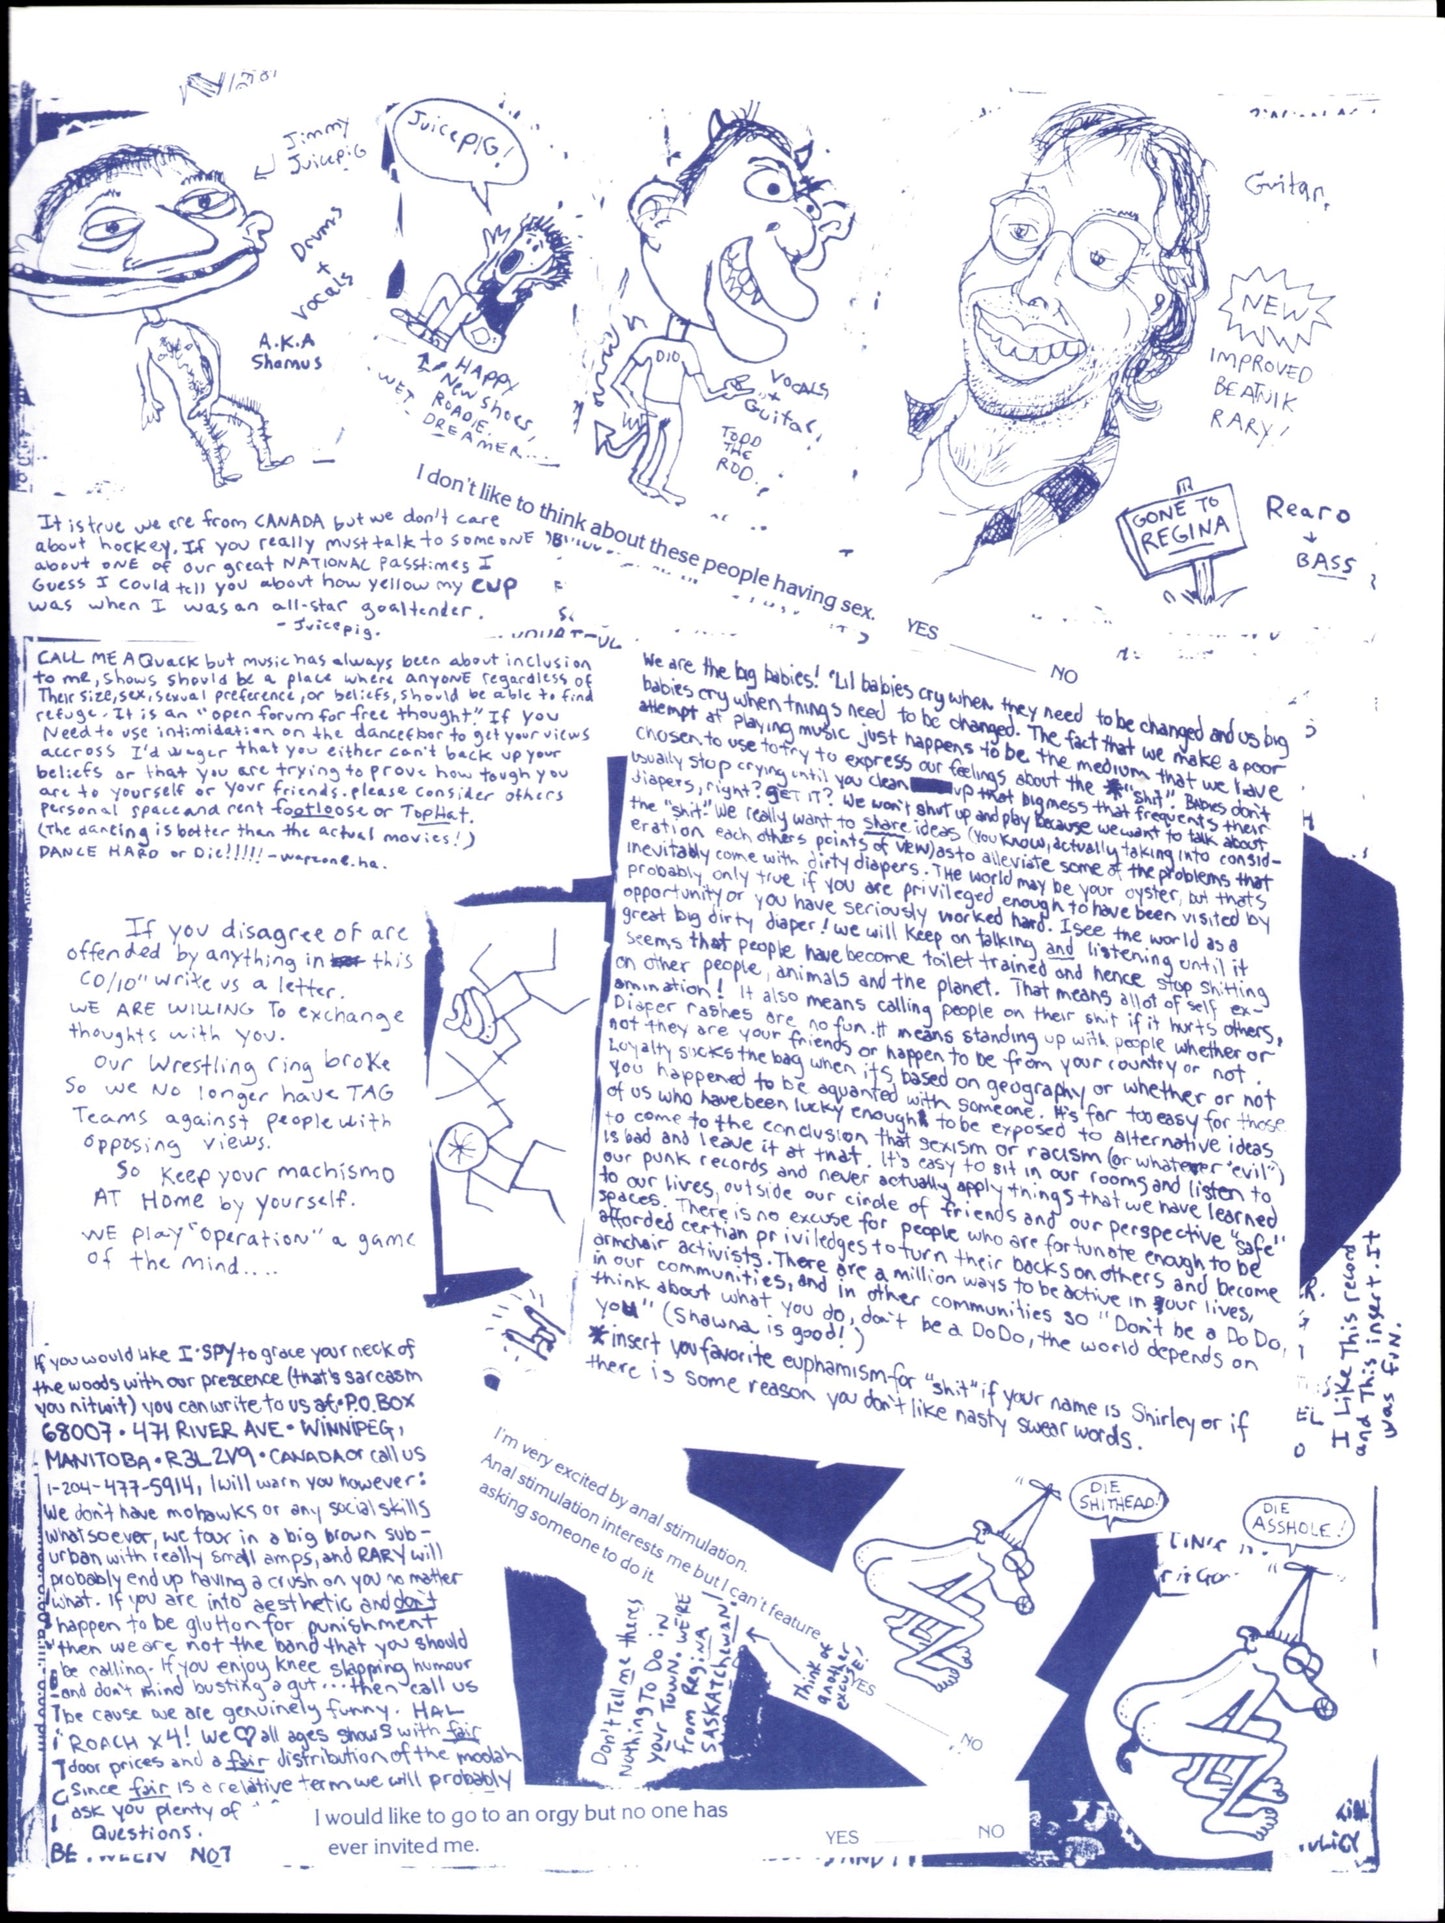 Jimmy
Juicepig
Drums
+
vocals
A.K.A
Shamus
Juicepig!
HAPPY
New Shoes,
ROADIE.
WET
DREAMER...
DIO
VOCALS
+
Guitar,
TODD
THE
ROD..
Guitar,
NEW
IMPROVED
BEATNIK
RARY!
GONE TO
REGINA
Rearo
BASS
I don't like to think about these people having sex.
YES
NO
It is true we are from CANADA but we don't care
about hockey. If you really must talk to someONE
about oNE of our great NATIONAL Passtimes I
Guess I could tell you about how yellow my CUP
was when I was an all-star goaltender.
- Juicepig.
CALL ME A Quack but music has always been about inclusion
to me, shows should be a place where anyonE regardless of
Their size, sex, sexual preference, or beliefs, should be able to find
refuge. It is an "open forum for free thought." If you
Need to use intimidation on the dancefloor to get your views
accross I'd wager that you either can't back up your
beliefs or that you are trying to prove how tough you
are to yourself or your friends. please consider others
personal space and rent footloose or TopHat.
(The dancing is better than the actual movies!)
DANCE HARD or Die!!!!! - warzone.ha.
If you disagree or are
offended by anything in this
CD/10" write us a letter.
WE ARE WILLING To exchange
thoughts with you.
Our Wrestling ring broke
So we No longer have TAG
Teams against people with
opposing views.
So Keep your machismo
AT Home by yourself.
WE PLAY "operation" a game
of the mind....
If you would like I·SPY to grace your neck of
the woods with our prescence (that's sarcasm
you nitwit) you can write to us at·P.O. BOX
68007·471 RIVER AVE·WINNIPEG,
MANITOBA·R3L 2V9·CANADA or call us
1-204-477-5914, I will warn you however:
We don't have mohawks or any social skills
whatsoever, we tour in a big brown sub-
urban with really small amps, and RARY will
probably end up having a crush on you no matter
what. If you are into aesthetic and don't
happen to be glutton for punishment
then we are not the band that you should
be calling. If you enjoy knee slapping humour
and don't mind busting a gut... then call us
be cause we are genuinely funny. HAL
ROACH x4! We ♡ all ages shows with fair
door prices and a fair distribution of the moolah
Since fair is a relative term we will probably
ask you plenty of
Questions.
We are the big babies! "Lil babies cry when they need to be changed and us big
babies cry when things need to be changed. The fact that we make a poor
attempt at playing music just happens to be the medium that we have
chosen to use to try to express our feelings about the *"shit". Babies don't
usually stop crying until you clean up that big mess that frequents their
diapers, right? gET IT? We won't shut up and play because we want to talk about
the "shit". We really want to share ideas (you know, actually taking into consid-
eration each others points of view) as to alleviate some of the problems that
inevitably come with dirty diapers. The world may be your oyster, but thats
probably only true if you are privileged enough to have been visited by
opportunity or you have seriously worked hard. I see the world as a
great big dirty diaper! we will Keep on talking and listening until it
seems that people have become toilet trained and hence stop shitting
on other people, animals and the planet. That means allot of self ex-
amination! It also means calling people on their shit if it hurts others,
Diaper rashes are no fun. It means standing up with people whether or
not they are your friends or happen to be from your country or not.
Loyalty sucks the bag when its based on geography or whether or not
you happened to be aquanted with someone. It's far too easy for those
of us who have been lucky enough to be exposed to alternative ideas
to come to the conclusion that sexism or racism (or whatever "evil")
is bad and leave it at that. It's easy to sit in our rooms and listen to
our punk records and never actually apply things that we have learned
to our lives, outside our circle of friends and our perspective "safe"
spaces. There is no excuse for people who are fortunate enough to be
afforded certian priviledges to turn their backs on others and become
armchair activists. There are a million ways to be active in your lives,
in our communities, and in other communities so "Don't be a Do Do,
think about what you do, don't be a DoDo, the world depends on
you" (Shawna is good!)
*insert you favorite euphamism for "shit" if your name is Shirley or if
there is some reason you don't like nasty swear words.
I Like This record
and This insert. It
was fuN.
I'm very excited by anal stimulation.
Anal stimulation interests me but I can't feature
asking someone to do it.
YES
NO
Don't Tell me theres
Nothing To Do in
your TOWN. WE'RE
from Regina
SASKATchewan!
Think of
another
excuse!
DIE
SHITHEAD!
DIE
ASSHOLE!
I would like to go to an orgy but no one has
ever invited me.
YES
NO